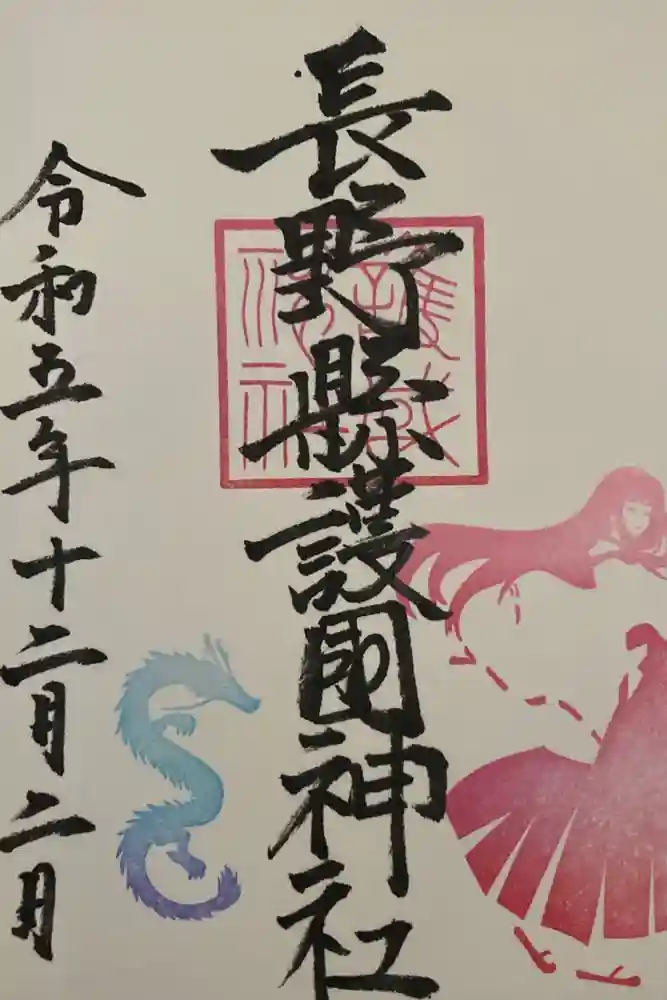 長野縣護國神社
令和五年十二月二月